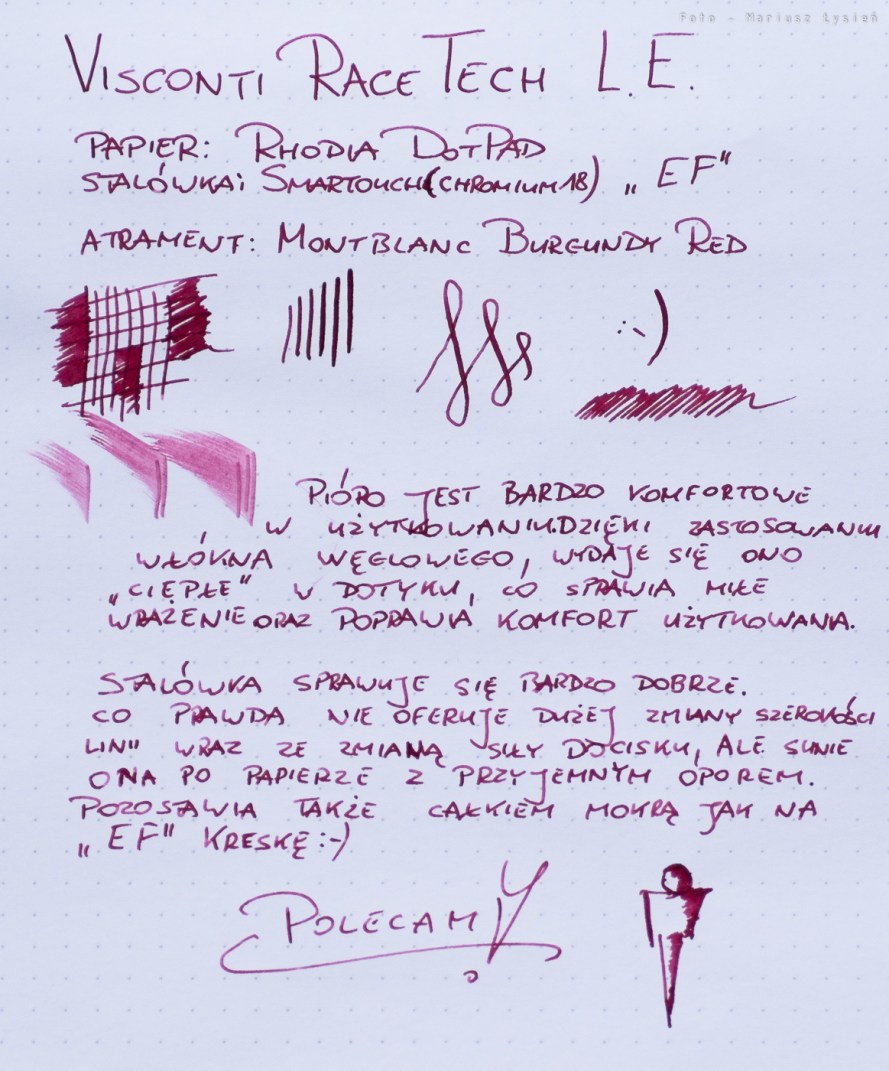 Foto - Mariusz Łysień
VISCONTI RACETECH L.E.
PAPIER: RHODIA DOTPAD
STALÓWKA: SMARTOUCH (CHROMIUM 18) „EF"
ATRAMENT: MONTBLANC BURGUNDY RED
:-)
PIÓRO JEST BARDZO KOMFORTOWE
W UŻYTKOWANIU. DZIĘKI ZASTOSOWANIU
WŁÓKNA WĘGLOWEGO, WYDAJE SIĘ ONO
„CIEPŁE" W DOTYKU, CO SPRAWIA MIŁE
WRAŻENIE ORAZ POPRAWIA KOMFORT UŻYTKOWANIA.
STALÓWKA SPRAWUJE SIĘ BARDZO DOBRZE.
CO PRAWDA NIE OFERUJE DUŻEJ ZMIANY SZEROKOŚCI
LINII WRAZ ZE ZMIANĄ SIŁY DOCISKU, ALE SUNIE
ONA PO PAPIERZE Z PRZYJEMNYM OPOREM.
POZOSTAWIA TAKŻE CAŁKIEM MOKRĄ JAK NA
„EF" KRESKĘ :-)
POLECAM!